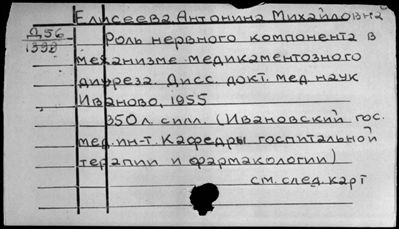 Елисеева, Антонина Михайловна
Д56
1392
Роль нервного компонента в
механизме медикаментозного
диуреза. Дисс. докт. мед наук
Иваново, 1955
350 л. силл. (Ивановский гос.
мед. ин-т. Кафедры госпитальной
терапии и фармакологии)
см. след. карт